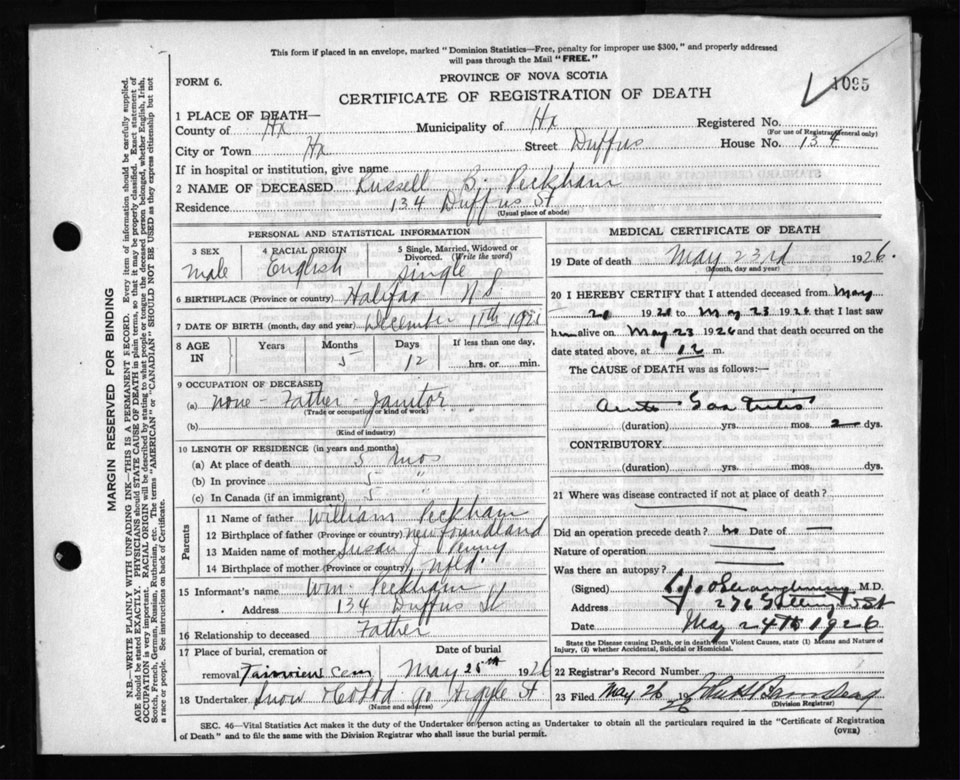 This form if placed in an envelope, marked "Dominion Statistics—Free, penalty for improper use $300," and properly addressed
will pass through the Mail "FREE."
FORM 6.
PROVINCE OF NOVA SCOTIA
1095
CERTIFICATE OF REGISTRATION OF DEATH
1 PLACE OF DEATH—
County of Hx Municipality of Hx Registered No.
(For use of Registrar General only)
City or Town Hx Street Duffus House No. 134
If in hospital or institution, give name
2 NAME OF DECEASED Russell B. Peckham
Residence 134 Duffus St
(Usual place of abode)
PERSONAL AND STATISTICAL INFORMATION
3 SEX male
4 RACIAL ORIGIN English
5 Single, Married, Widowed or Divorced. (Write the word) single
6 BIRTHPLACE (Province or country) Halifax N S.
7 DATE OF BIRTH (month, day and year) December 11th 192
8 AGE IN Years Months 5 Days 12 If less than one day, hrs. or min.
9 OCCUPATION OF DECEASED
(a) none - Father - Janitor
(Trade or occupation or kind of work)
(b)
(Kind of industry)
10 LENGTH OF RESIDENCE (in years and months)
(a) At place of death 5 mos
(b) In province 5 "
(c) In Canada (if an immigrant) 5 "
Parents
11 Name of father William Peckham
12 Birthplace of father (Province or country) newfoundland
13 Maiden name of mother Susan J Penny
14 Birthplace of mother (Province or country) Nfld.
15 Informant's name Wm. Peckham
Address 134 Duffus St
16 Relationship to deceased Father
17 Place of burial, cremation or removal Fairview Cem
Date of burial May 25th 1926
18 Undertaker Snow & Co Ltd 90 Argyle St.
(Name and address)
MEDICAL CERTIFICATE OF DEATH
19 Date of death May 23rd 1926.
(Month, day and year)
20 I HEREBY CERTIFY that I attended deceased from May
1926 to May 23 1926 that I last saw
him alive on May 23 1926 and that death occurred on the
date stated above, at 12 m.
The CAUSE of DEATH was as follows:—
(duration) yrs. mos. 2 dys.
CONTRIBUTORY
(duration) yrs. mos. dys.
21 Where was disease contracted if not at place of death?
Did an operation precede death? no Date of —
Nature of operation
Was there an autopsy?
(Signed) M.D.
Address 276 St
Date May 24th 1926
State the Disease causing Death, or in death from Violent Causes, state (1) Means and Nature of
Injury, (2) whether Accidental, Suicidal or Homicidal.
22 Registrar's Record Number
23 Filed May 26 1926
(Division Registrar)
SEC. 46—Vital Statistics Act makes it the duty of the Undertaker or person acting as Undertaker to obtain all the particulars required in the "Certificate of Registration
of Death" and to file the same with the Division Registrar who shall issue the burial permit.
(OVER)
MARGIN RESERVED FOR BINDING
N.B.—WRITE PLAINLY WITH UNFADING INK—THIS IS A PERMANENT RECORD. Every item of information should be carefully supplied.
AGE should be stated EXACTLY. PHYSICIANS should STATE CAUSE OF DEATH in plain terms, so that it may be properly classified. Exact statement of
OCCUPATION is very important. RACIAL ORIGIN will be described by stating to what people or tongue the deceased person belonged, whether English, Irish,
Scotch, French, German, Russian, Ruthenian, etc. The terms "AMERICAN" or "CANADIAN" SHOULD NOT BE USED as they express citizenship but not
a race or people. See instructions on back of Certificate.